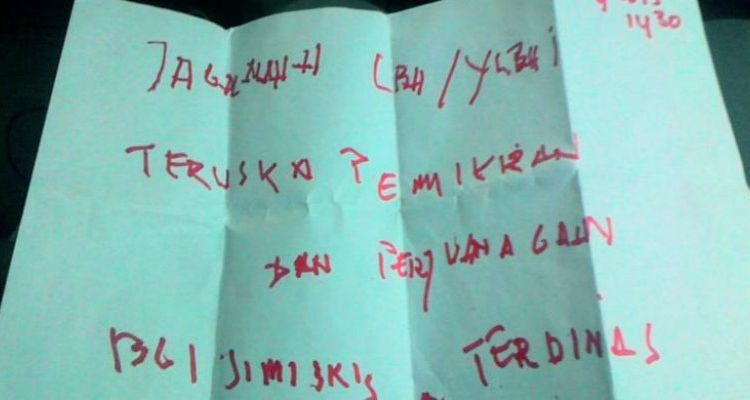 1430
LBH/YLBHI
TERUSKA PEMIKIRAN
DAN PERJUANAGAIN
BGI SIMISKIS TERDINAS